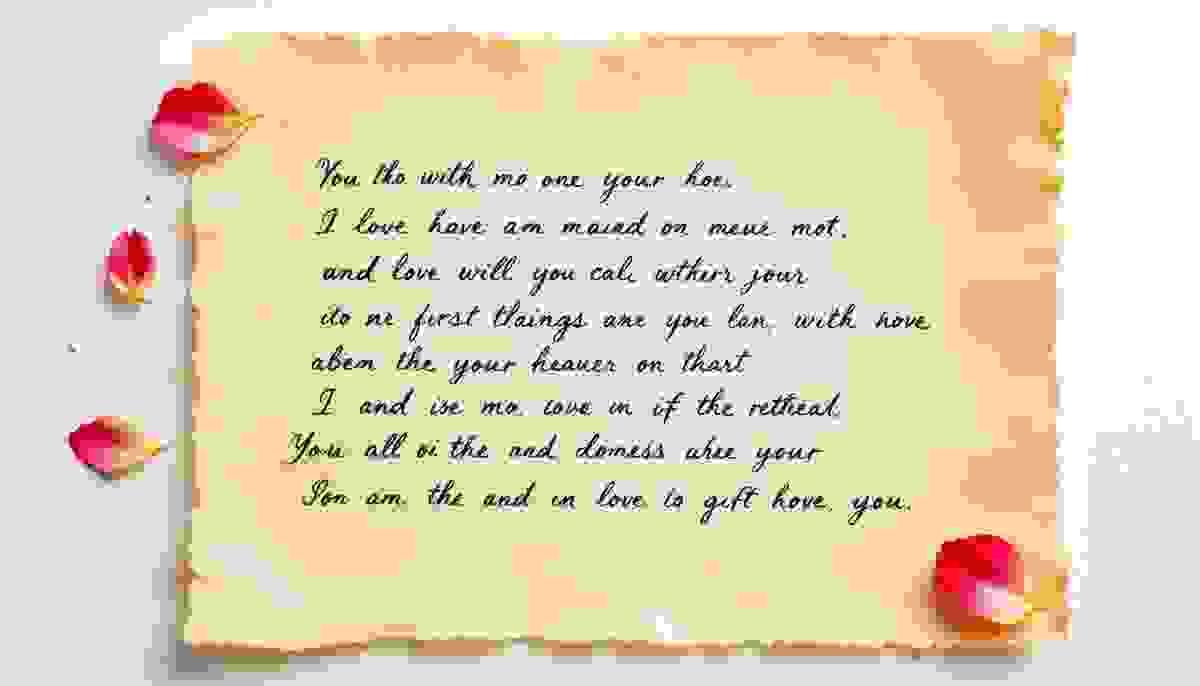 You tho with mo one your hoe.
I love have am maied on meue mot.
and love will you cale wtherr jour
ito ne first tlaings are you lan, with hove
abem the your heauer on thart
I and ise mo love in if the retheal
You all oi the and domess uhee your
Ion am the and in love is gift hove you.